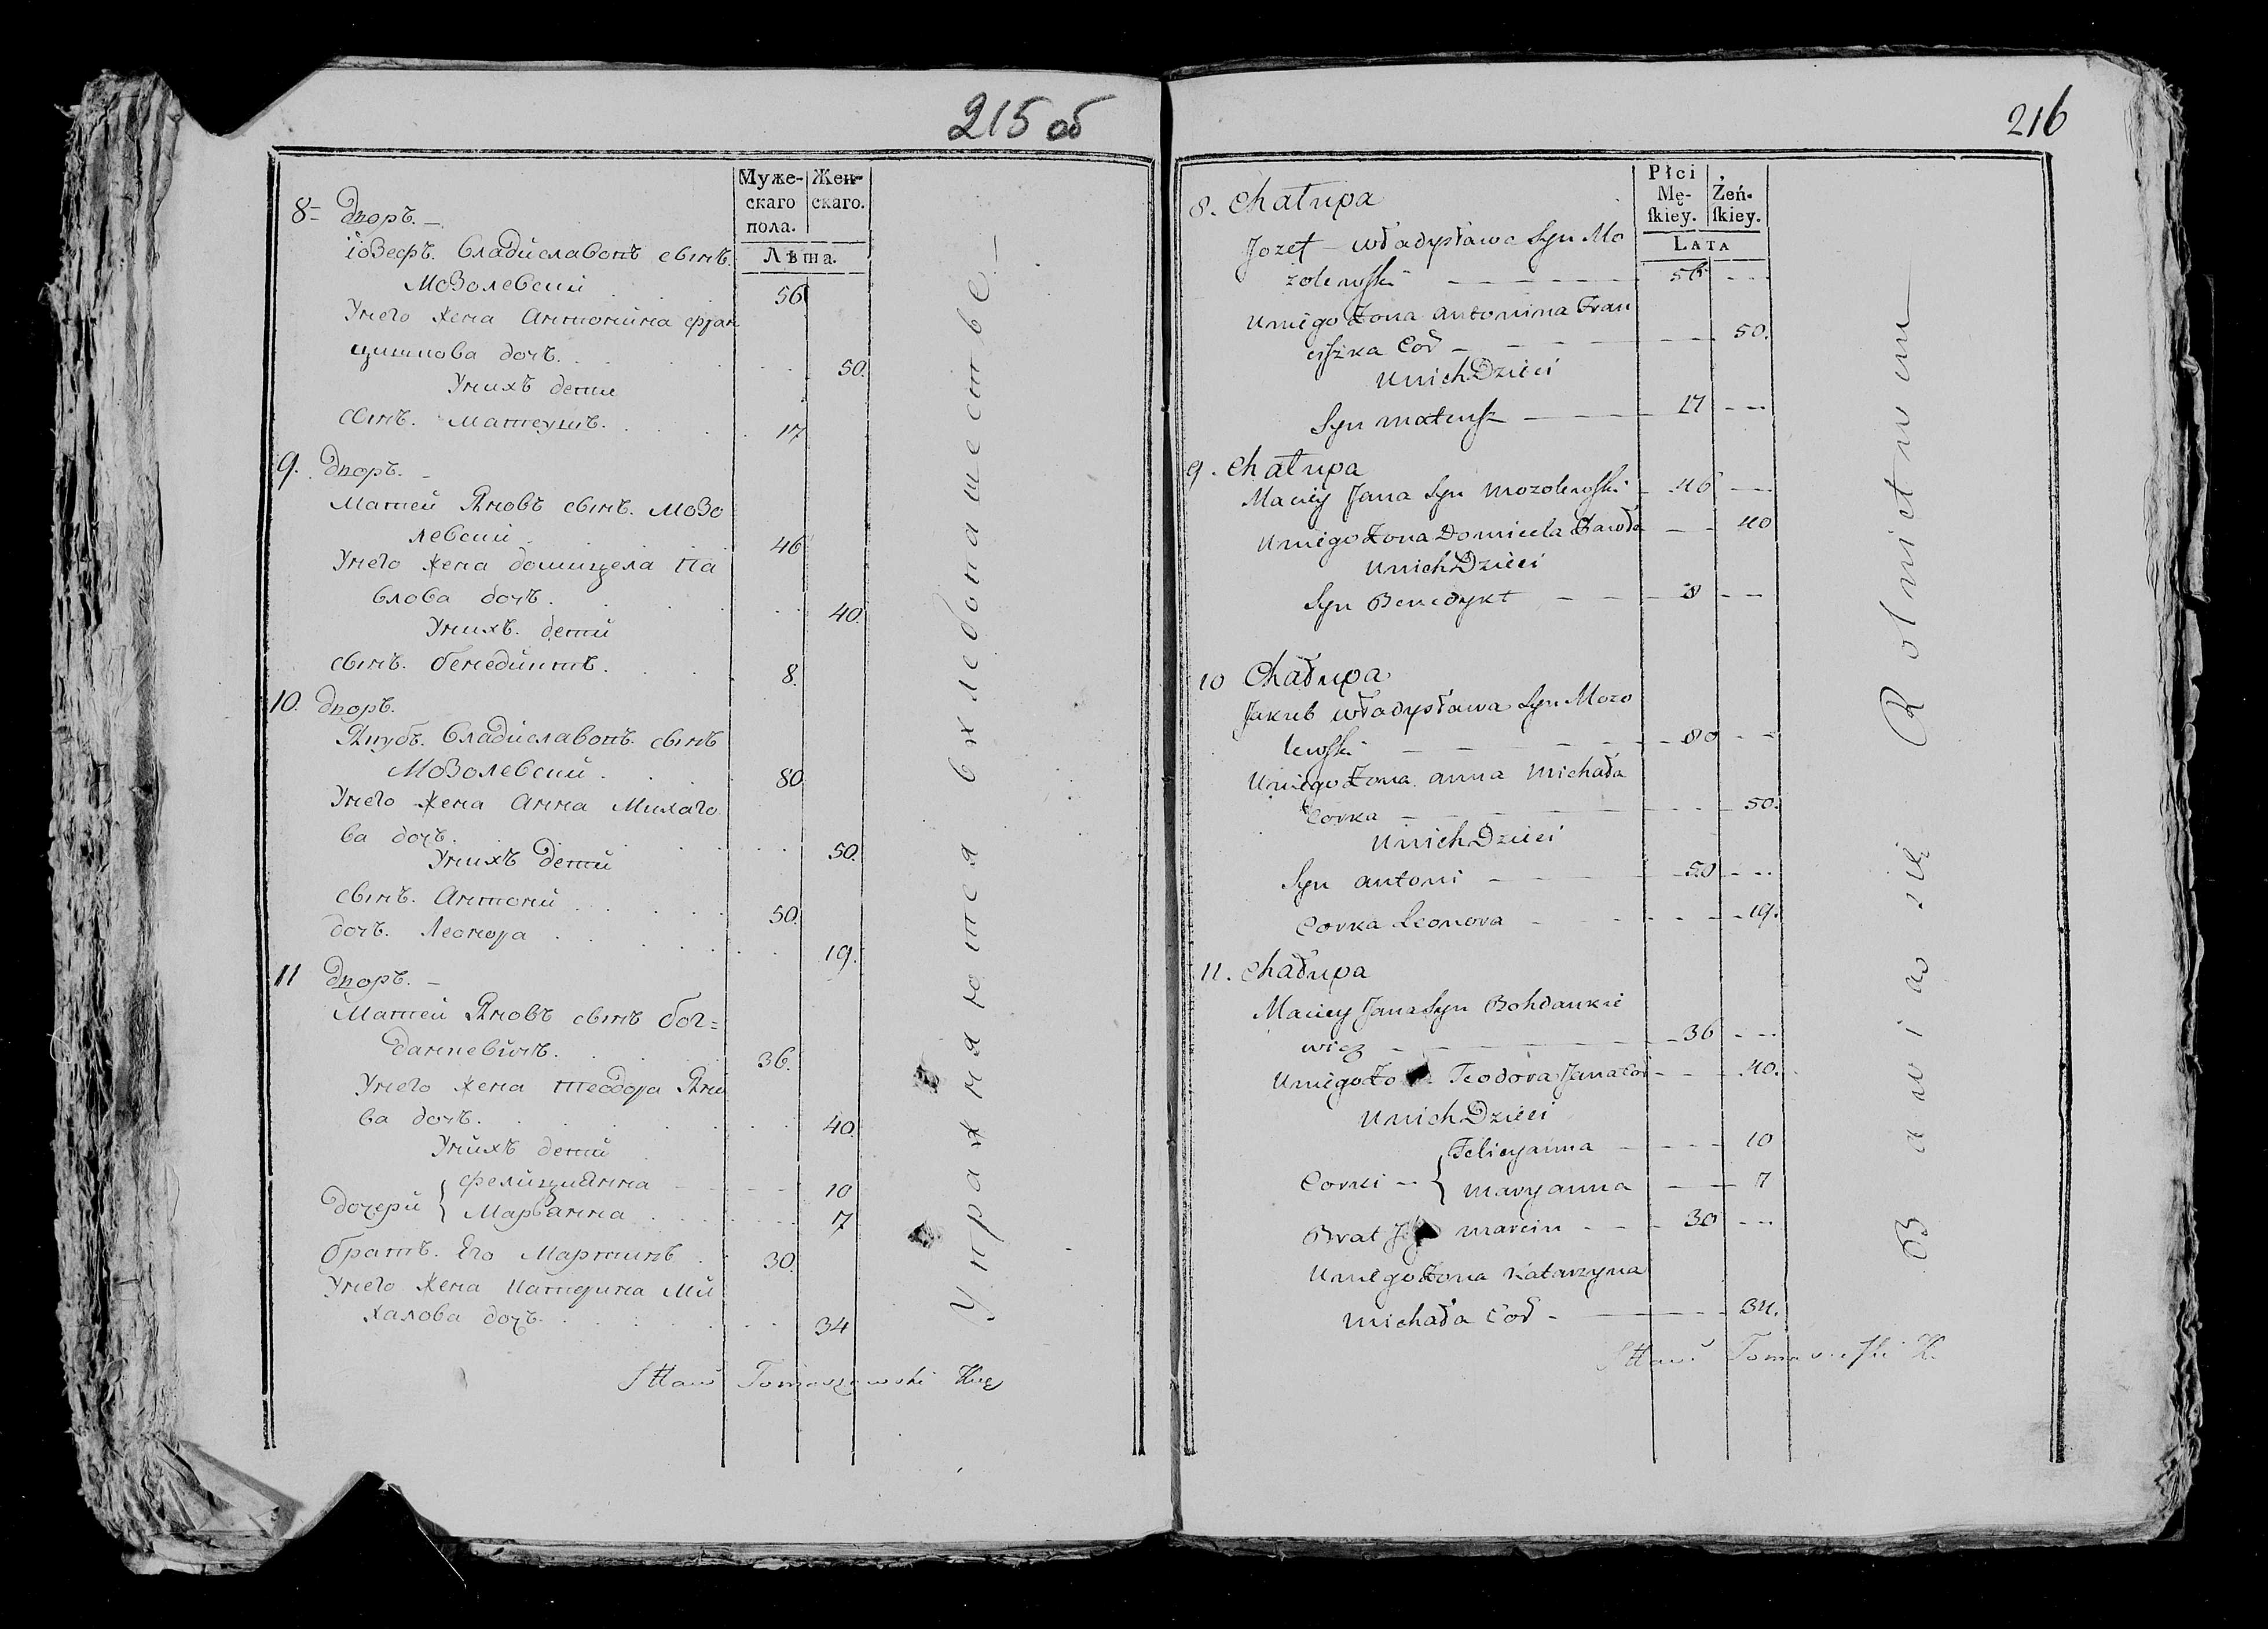 215 об
Муже-
скаго
пола.
Жен-
скаго.
Лѣта.
8 = Дворъ. —
іозефъ. Владиславовъ сынъ.
Мозолевский 56
Унего жена Антонина фран
цишкова дочь. 50.
Унихъ дети
сынъ. Матеушъ. 17
9. Дворъ. —
Матей Яновъ сынъ. Мозо
левский 46
Унего жена домицела Па
влова дочь. 40.
Унихъ. дети
сынъ. бенедиктъ. 8.
10. Дворъ.
Якубъ. Владиславовъ. сынъ
Мозолевский. 80
Унего жена Анна Михало
ва дочь. 50.
Унихъ дети
сынъ. Антоний 50.
дочь. Леонора 19.
11 Дворъ. —
Матей Яновъ сынъ бог=
данкевичъ. 36.
Унего жена теодора Яно
ва дочь. 40.
Унихъ дети
дочери { фелициянна 10
Марьанна 17
братъ. Его Мартинъ 30.
Унего жена катерина Ми
халова дочь. 34
Упражняются в хлебопашестве. —
Sttani Tomaszewski
216
Płci
Mę-
ſkiey.
Żeń-
ſkiey.
LATA
8. Chałupa
Jozef Władysława Syn Mo
zolewſki 56
Uniego Żona Antonina Fran
ciſzka Cor 50.
Unich Dzieci
Syn Mateuſz 17
9. Chałupa
Maciey Jana Syn Mozolewſki 46
Uniego Żona Domicela Pawła 40
Unich Dzieci
Syn Benedykt 8
10 Chałupa
Jakub Władysława Syn Mozo
lewſki 80
Uniego Żona Anna Michała
Corka 50.
Unich Dzieci
Syn Antoni 50
Corka Leonora 19.
11. Chałupa
Maciey Jana Syn Bohdankie
wicz 36
Uniego Żo Teodora Jana Cor 40.
Unich Dzieci
Corki { Felicyanna 10
Maryanna 7
Brat Jego Marcin 30
Uniego Żona Katarzyna
Michała Cor 34.
Bawią się Rolnictwem
Sttani Tomaszewſki K.